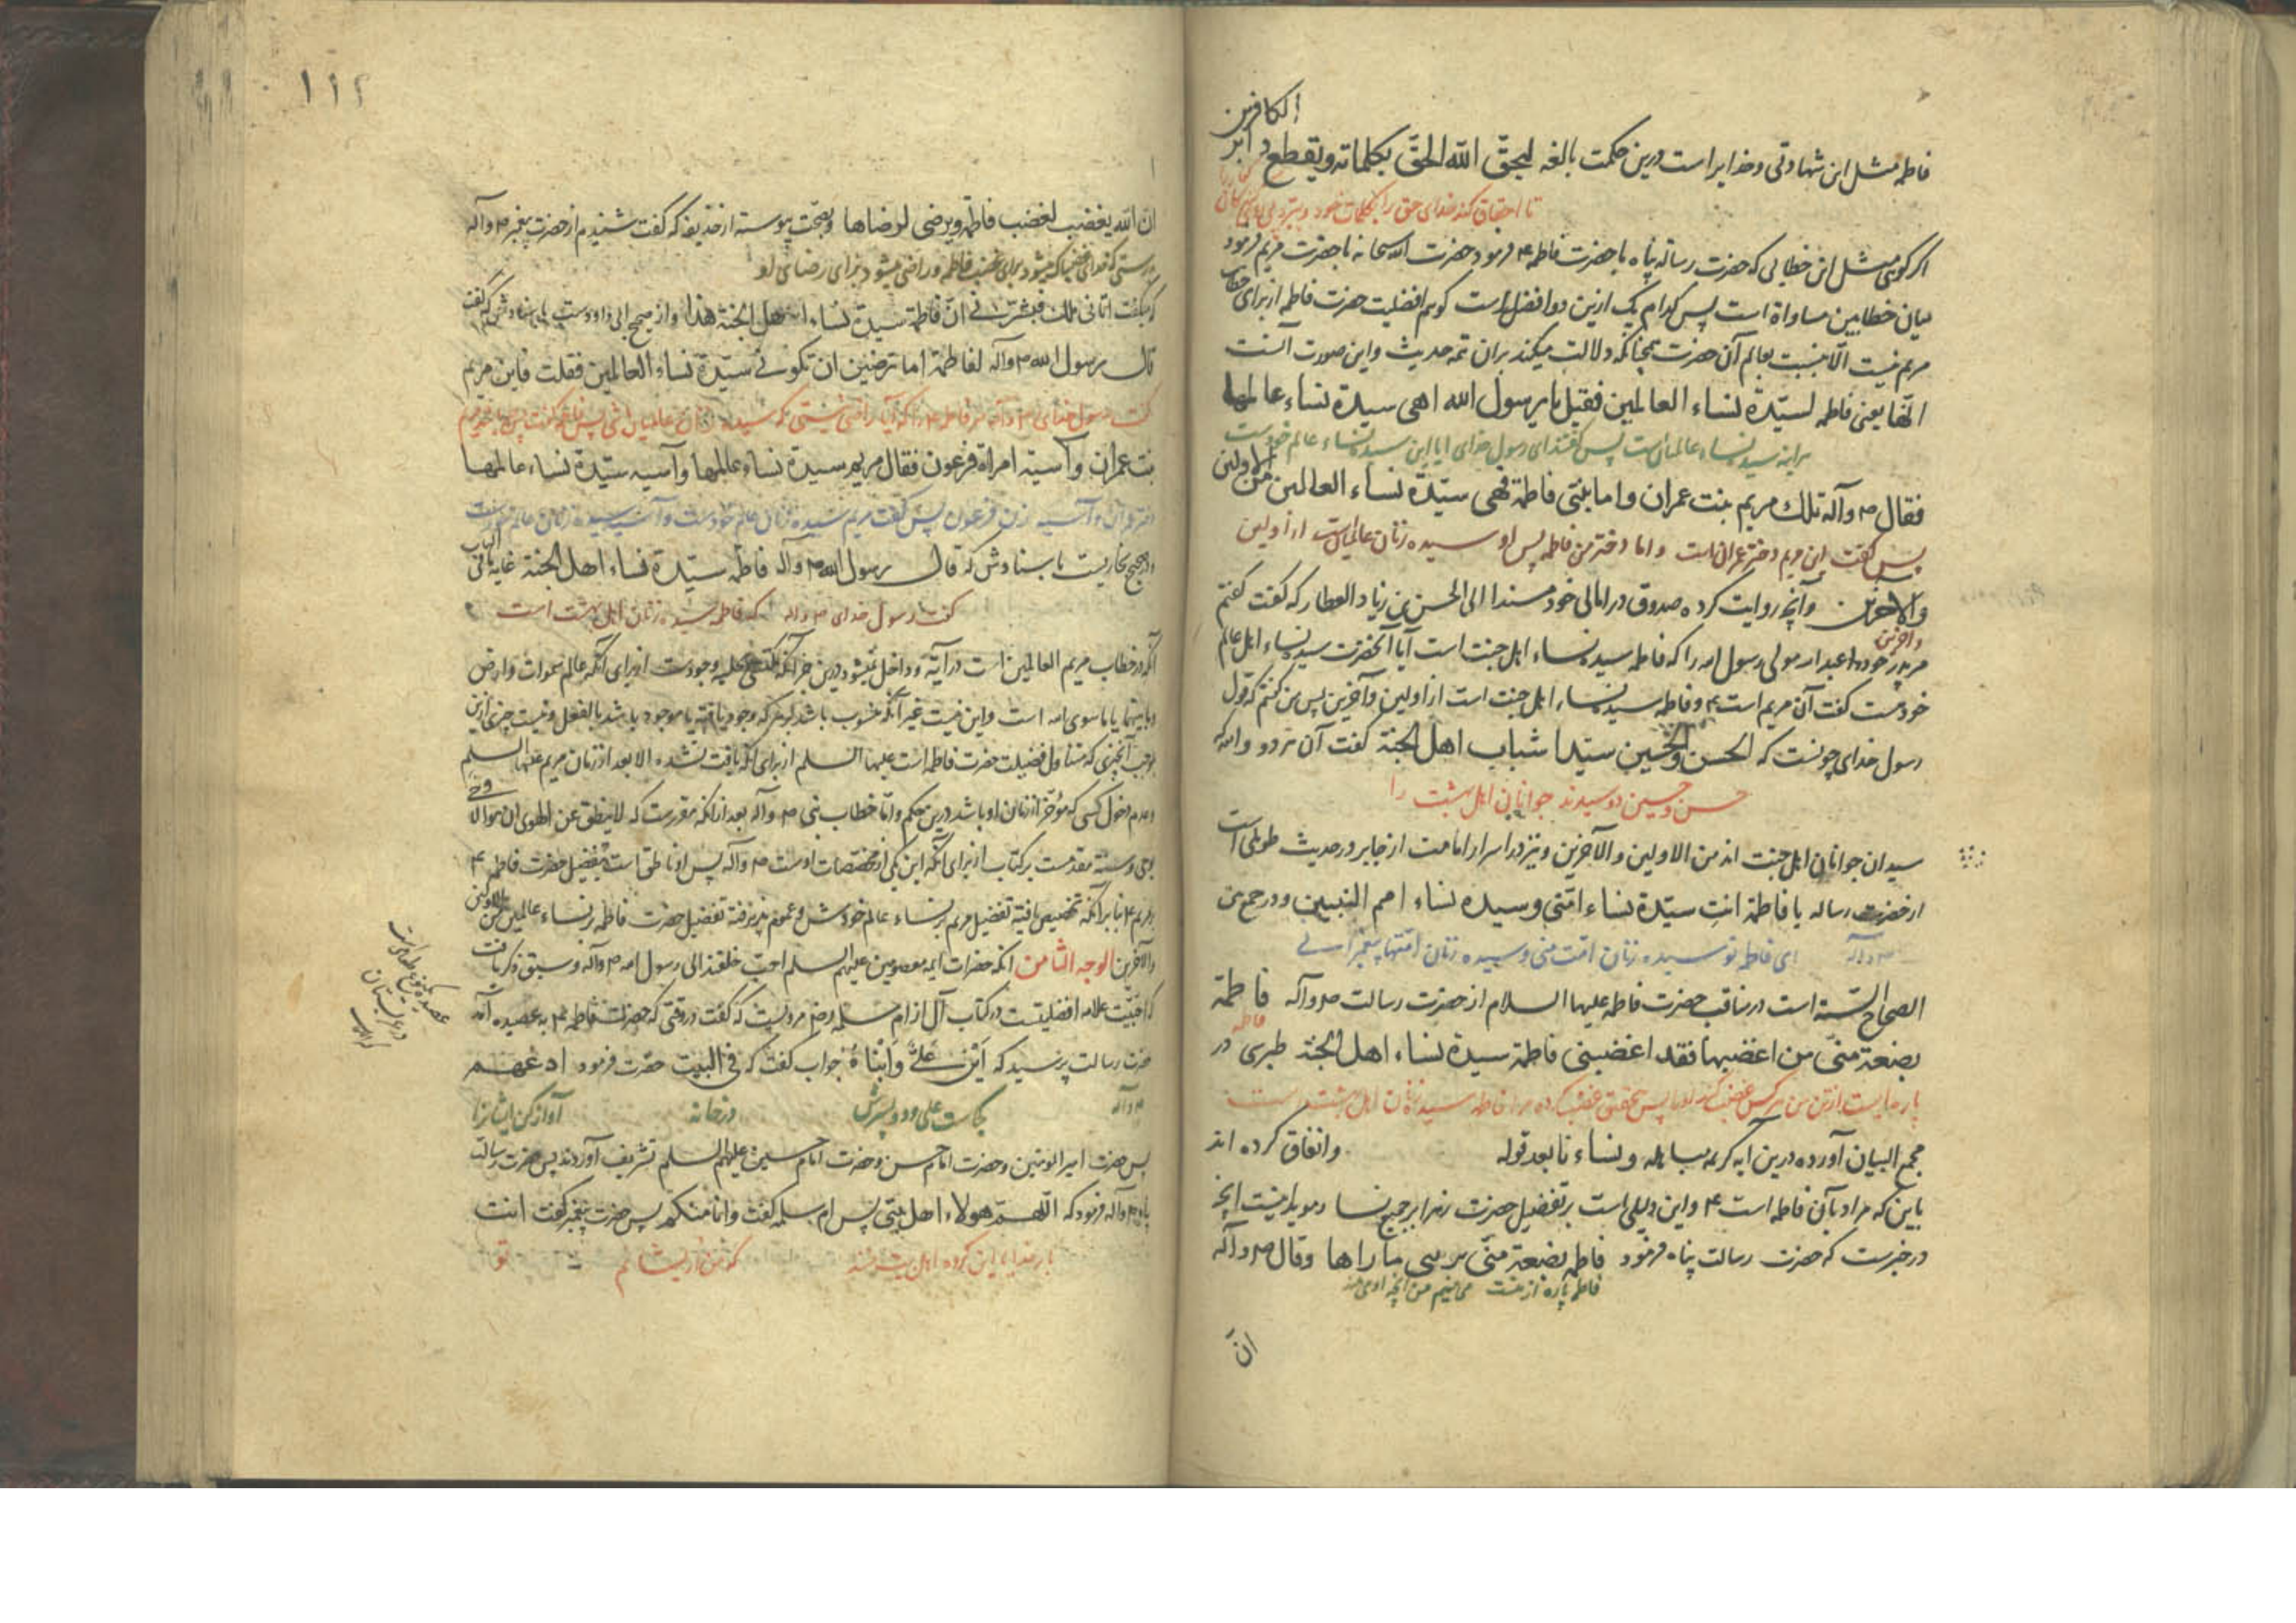 الکافرین
فاطمه مثل این شهادتی و خدایراست درین حکمت بالغه لیحقّ اللّه الحقّ بکلماته ویقطع دابر
تا احقاق کند خدای حق را بکلمات خود و ببرد
اکر کویی مثل این خطابی که حضرت رسالة پناه با حضرت فاطمه ۴ فرمود حضرت الله سبحانه با حضرت مریم فرمود
میان خطابین مساواة است پس کدام یک ازین دو افضل است کویم افضلیت حضرت فاطمه از برای خطاب
مریم نیست الّا بنسبت بعالم آن حضرت همچنانکه دلالت میکند بران تتمه حدیث و این صورت آنست
انّها یعنی فاطمه لسیّدة نساء العالمین فقیل یا رسول الله اهی سیدة نساء عالمها
براینه سیده نساء عالمیان است پس گفتند ای رسول خدای ایا این سیده نساء عالم خودست
فقال ص وآله تلك مریم بنت عمران و اما بنتی فاطمة فهی سیّدة نساء العالمین من الاولین
پس گفت این مریم دختر عمران است و اما دختر من فاطمه پس او سیده زنان عالمیانست از اولین
والاخرین و آنچه روایت کرده صدوق در امالی خود مسندا الی الحسن بن زیاد العطار که گفت گفتم
و آخرین
مر ابا عبدالله مولی رسول الله را که فاطمه سیده نساء اهل جنت است آیا آنحضرت سیده نساء اهل عالم
خودست گفت آن مریم است ۴ و فاطمه سیده نساء اهل جنت است از اولین و آخرین پس من گفتم که قول
رسول خدای چونست که الحسن والحسین سیّدا شباب اهل الجنة گفت آن هر دو والله که
حسن و حسین دو سیدند جوانان اهل بهشت را
سیدان جوانان اهل جنت اند من الاولین والآخرین و نیز در اسرار امامت از جابر در حدیث طویلی است
از حضرت رساله یا فاطمة انتِ سیّدة نساء امّتی وسیده نساء امم النبیین و در جمع بین
ص وآله ای فاطمه تو سیده زنان امّت منی و سیده زنان امّتها پیغمبرانی
الصحاح الستة است در مناقب حضرت فاطمه علیها السلام از حضرت رسالت ص وآله فاطمة
فاطمه
بضعة منّی من اغضبها فقد اغضبنی فاطمة سیدة نساء اهل الجنة طبرسی در
پاره ایست از تن من هر کس غضب کند او را پس بتحقیق غضب کرده مرا فاطمه سیده زنان اهل بهشت است
مجمع البیان آورده درین ایه کریمه مباهله و نساءنا بعد قوله و اتفاق کرده اند
باین که مراد بآن فاطمه است ۴ و این دلیلی است بر تفضیل حضرت زهرا بر جمیع نسا و موید اینست انچه
در خبرست که حضرت رسالت پناه فرمود فاطمه بضعة منّی یریبنی ما رابها وقال ص وآله
فاطمه پاره از منست
انّ
۱۱۲
ان الله یغضب لغضب فاطمة ویرضی لرضاها و بصحت پیوسته از حذیفه که گفت شنیدم از حضرت پیغمبر ص وآله
بدرستی که خدای غضبناک میشود برای غضب فاطمه و راضی میشود برای رضای او
که میگفت اتانی ملك فبشّرنی انّ فاطمة سیدة نساء اهل الجنة هذا و از صحیح ابی داود است باسنادش که گفت
قال رسول الله ص وآله لفاطمة اما ترضین ان تکونی سیّدة نساء العالمین فقلت فاین مریم
گفت رسول خدای ص وآله مر فاطمه را که آیا راضی نیستی که سیده زنان عالمیان باشی پس
بنت عمران وآسیة امراة فرعون فقال مریم سیدة نساء عالمها وآسیه سیّدة نساء عالمها
دختر عمران و آسیه زن فرعون پس گفت مریم سیده زنان عالم خودست و آسیه سیده زنان عالم خودست
و صحیح بخاریست باسنادش که قال رسول الله ص وآله فاطمة سیّدة نساء اهل الجنة غایة ما فی الباب
گفت رسول خدای ص وآله که فاطمه سیده زنان اهل بهشت است
آنکه در خطاب مریم العالمین است در آیة و داخل نمیشود درین خبر آنکه از برای آنکه عالم سموات و ارض
و ما بینهما یا ما سوی الله است و این نیست غیر آنکه منسوب باشد بهر که وجود یافته یا موجود باشد بالفعل و نیست چیزی ازین
موجب آنچیزی که متناول فضیلت حضرت فاطمه است علیها السلم از برای آنکه یافت نشده الا بعد از زمان مریم علیها السلم
و عدم دخول کسی که مؤخر از زمان او باشد درین حکم و امّا خطاب نبی ص وآله بعد از آنکه مقررست که لا ینطق عن الهوی ان هو الا وحی
یوحی و سنة مقدمست بر کتاب از برای آنکه این یکی از مختصات اوست ص وآله پس او ناطق است بتفضیل حضرت فاطمه ۴
بر مریم ۴ بنا بر آنکه تخصیص یافته تفضیل مریم بر نساء عالم خودش و عموم پذیرفته تفضیل حضرت فاطمه بر نساء عالمین من الاولین
والآخرین الوجه الثامن آنکه حضرات ایمه معصومین علیهم السلم احبّ خلقند الی رسول الله ص وآله و سبق ذکر یافت
که احبّیّت علامه افضلیتست در کتاب آل از ام سلمه رض مرویست که گفت در وقتی که حضرت فاطمه ۴ به عصیده آمد
حضرت رسالت پرسید که اَیْنَ عَلیٌّ وَابْناهُ جواب گفت که فی البیت حضرت فرمود ادعهم
ص وآله کجاست علی و دو پسرش در خانه آواز کن ایشانرا
پس حضرت امیر المومنین و حضرت امام حسن و حضرت امام حسین علیهم السلم تشریف آوردند پس حضرت رسالت
پناه ص وآله فرمود که اللّهمّ هولاء اهل بیتی پس ام سلمه گفت وانا منکم پس حضرت پیغمبر گفت انت
بار خدایا این گروه اهل بیت منند که من از ایشانم تو
عصیده نوع طعامی است
در عربستان